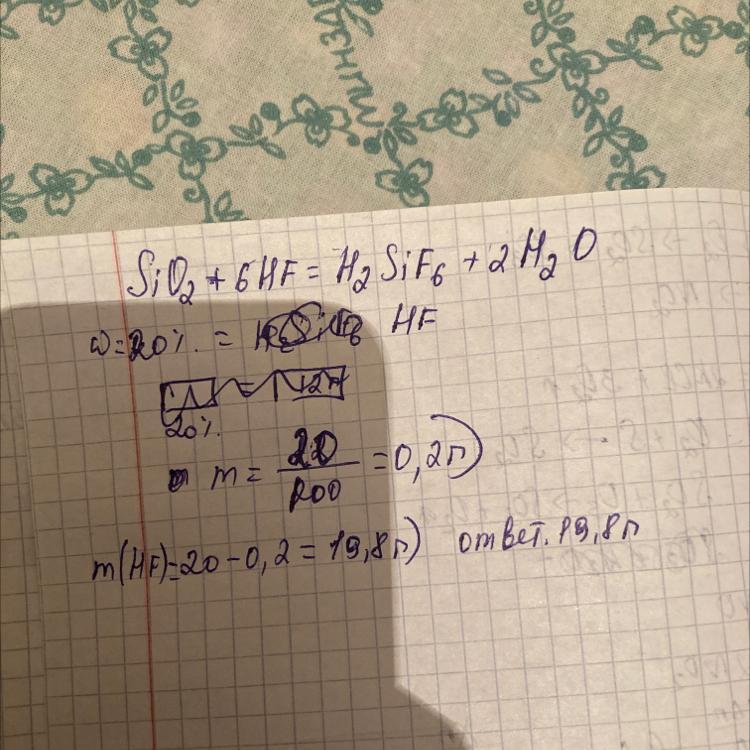 SiO₂ + 6HF = H₂SiF₆ + 2H₂O
ω = 20%. = HF
20%.
m = 20/100 = 0,2г)
m(HF) = 20 - 0,2 = 19,8г) ответ. 19,8г